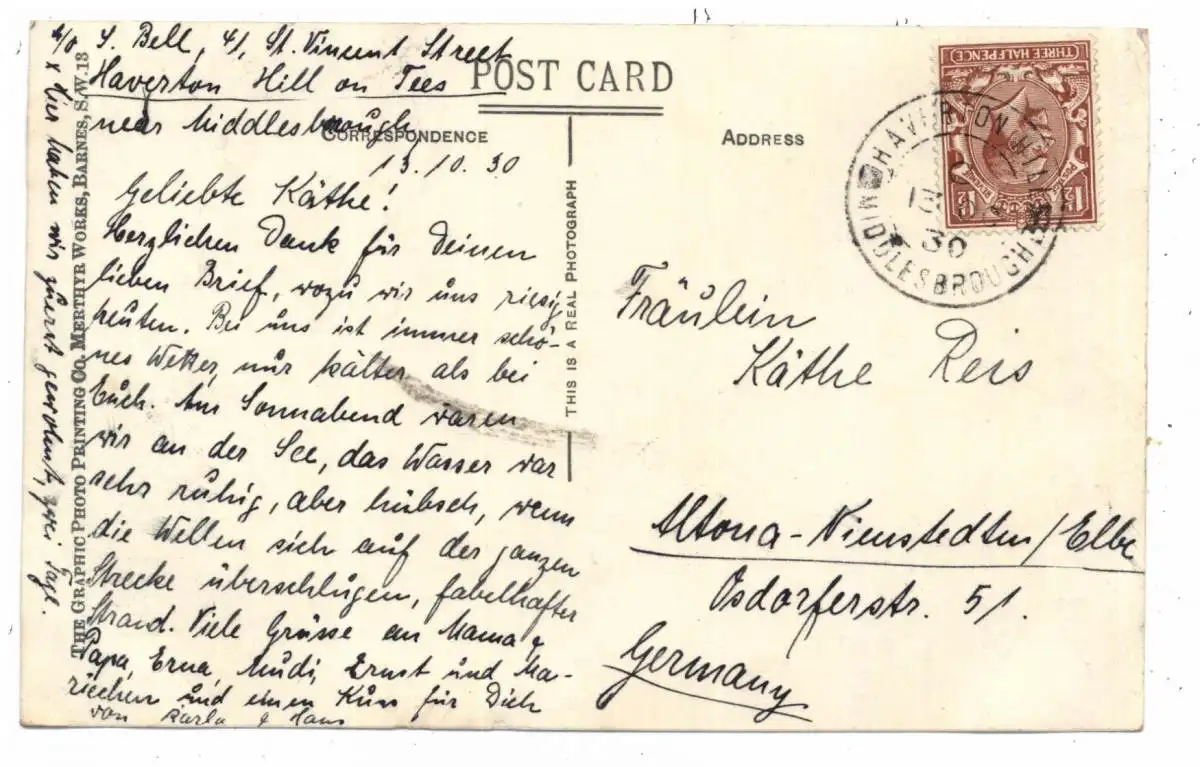 c/o S. Bell, 41, St. Vincent Street
Haverton Hill on Tees
near Middlesbrough
POST CARD
CORRESPONDENCE
ADDRESS
13.10.30
Geliebte Käthe!
Herzlichen Dank für Deinen
lieben Brief, wozu wir uns riesig
freuten. Bei uns ist immer schö-
nes Wetter, nur kälter als bei
Euch. Am Sonnabend waren
wir an der See, das Wasser war
sehr ruhig, aber hübsch, wenn
die Wellen sich auf der ganzen
Strecke überschlügen, fabelhafter
Strand. Viele Grüsse an Mama &
Papa, Erna, Mudi, Ernst und Ma-
riechen und einen Kuss für Dich
von Karla & Hans
x Hier haben wir zuerst gewohnt, zwei Tage.
THE GRAPHIC PHOTO PRINTING CO. MERTHYR WORKS, BARNES, S.W.13
THIS IS A REAL PHOTOGRAPH
THREE HALFPENCE
POSTAGE
1½
1½
HAVERTON HILL
13
30
MIDDLESBROUGH
Fräulein
Käthe Reis
Altona-Nienstedten/Elbe
Osdorferstr. 51.
Germany